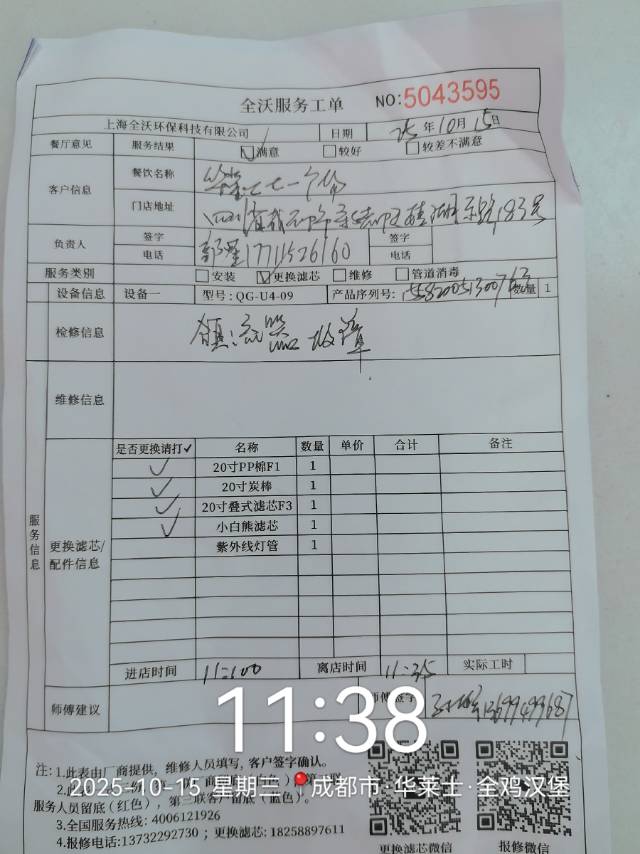 全沃服务工单 NO:5043595
上海全沃环保科技有限公司 日期 25年10月15日
餐厅意见 服务结果 ☑满意 □较好 □较差不满意
客户信息 餐饮名称
门店地址
负责人 签字 电话 17711526160 签字 电话
服务类别 □安装 ☑更换滤芯 □维修 □管道消毒
设备信息 设备一 型号:QG-U4-09 产品序列号: 数量 1
检修信息 镇流器故障
维修信息
服务信息
更换滤芯/配件信息
是否更换请打✓ 名称 数量 单价 合计 备注
✓ 20寸PP棉F1 1
✓ 20寸炭棒 1
✓ 20寸叠式滤芯F3 1
✓ 小白熊滤芯 1
紫外线灯管 1
进店时间 11:00 离店时间 11:35 实际工时
师傅建议 师傅签字 13699499687
11:38
注: 1.此表由厂商提供，维修人员填写, 客户签字确认。
2025-10-15 星期三 成都市·华莱士·全鸡汉堡
服务人员留底(红色)，第三联客户留底(蓝色)。
3.全国服务热线: 4006121926
4.报修电话:13732292730；更换滤芯: 18258897611
更换滤芯微信 报修微信